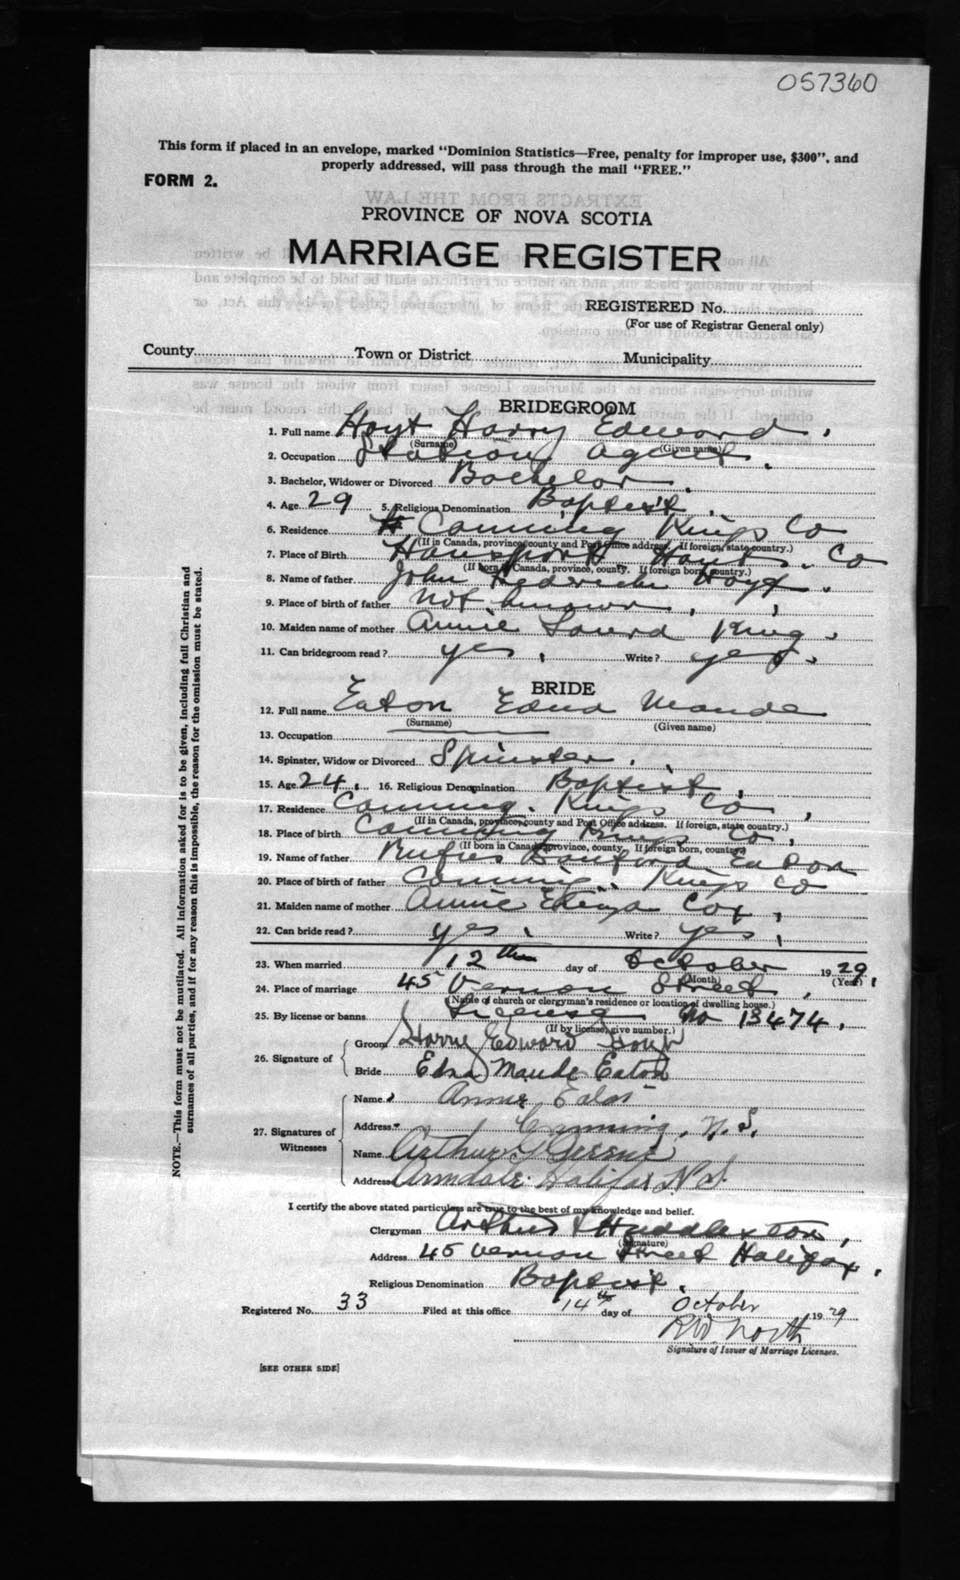 057360
This form if placed in an envelope, marked "Dominion Statistics—Free, penalty for improper use, $300", and
properly addressed, will pass through the mail "FREE."
FORM 2.
PROVINCE OF NOVA SCOTIA
MARRIAGE REGISTER
REGISTERED No.
(For use of Registrar General only)
County Town or District Municipality
BRIDEGROOM
1. Full name Hoyt Harry Edward.
(Surname) (Given name)
2. Occupation Station Agent.
3. Bachelor, Widower or Divorced Bachelor.
4. Age 29 5. Religious Denomination Baptist.
6. Residence Canning Kings Co
(If in Canada, province, county and Post Office address. If foreign, state country.)
7. Place of Birth Hantsport Hants. Co
(If born in Canada, province, county. If foreign born, country.)
8. Name of father John Frederick Hoyt.
9. Place of birth of father not known.
10. Maiden name of mother Annie King.
11. Can bridegroom read? yes. Write? yes.
BRIDE
12. Full name Eaton Edna Maude
(Surname) (Given name)
13. Occupation
14. Spinster, Widow or Divorced Spinster.
15. Age 24. 16. Religious Denomination Baptist.
17. Residence Canning. Kings Co,
(If in Canada, province, county and Post Office address. If foreign, state country.)
18. Place of birth Canning Kings Co,
(If born in Canada, province, county. If foreign born, country)
19. Name of father Rufus Eaton
20. Place of birth of father Canning. Kings Co
21. Maiden name of mother Annie Cox,
22. Can bride read? yes. Write? yes,
23. When married 12th day of October 1929.
(Month) (Year)
24. Place of marriage 45 Vernon Street.
(Name of church or clergyman's residence or location of dwelling house.)
25. By license or banns License No 13474.
(If by license, give number.)
26. Signature of Groom Harry Edward Hoyt
Bride Edna Maude Eaton
27. Signatures of Witnesses
Name Annie
Address Canning, N.S.
Name Arthur G
Address Armdale Halifax N.S.
I certify the above stated particulars are true to the best of my knowledge and belief.
Clergyman Arthur Huddleston,
(Signature)
Address 45 Vernon Street Halifax.
Religious Denomination Baptist.
Registered No. 33 Filed at this office 14th day of October 1929
R.W. North
Signature of Issuer of Marriage Licenses.
[SEE OTHER SIDE]
NOTE.—This form must not be mutilated. All information asked for is to be given, including full Christian and
surnames of all parties, and if for any reason this is impossible, the reason for the omission must be stated.